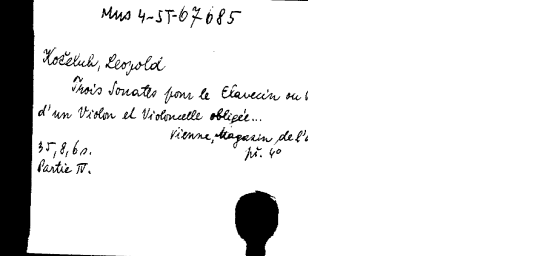 Mus 4-ST-67685
Koželuh, Leopold
Trois Sonates pour le Clavecin ou
d'un Violon et Violoncelle obligée...
Vienne, Magazin de l'
35, 8, 6 s. př. 4°
Partie IV.